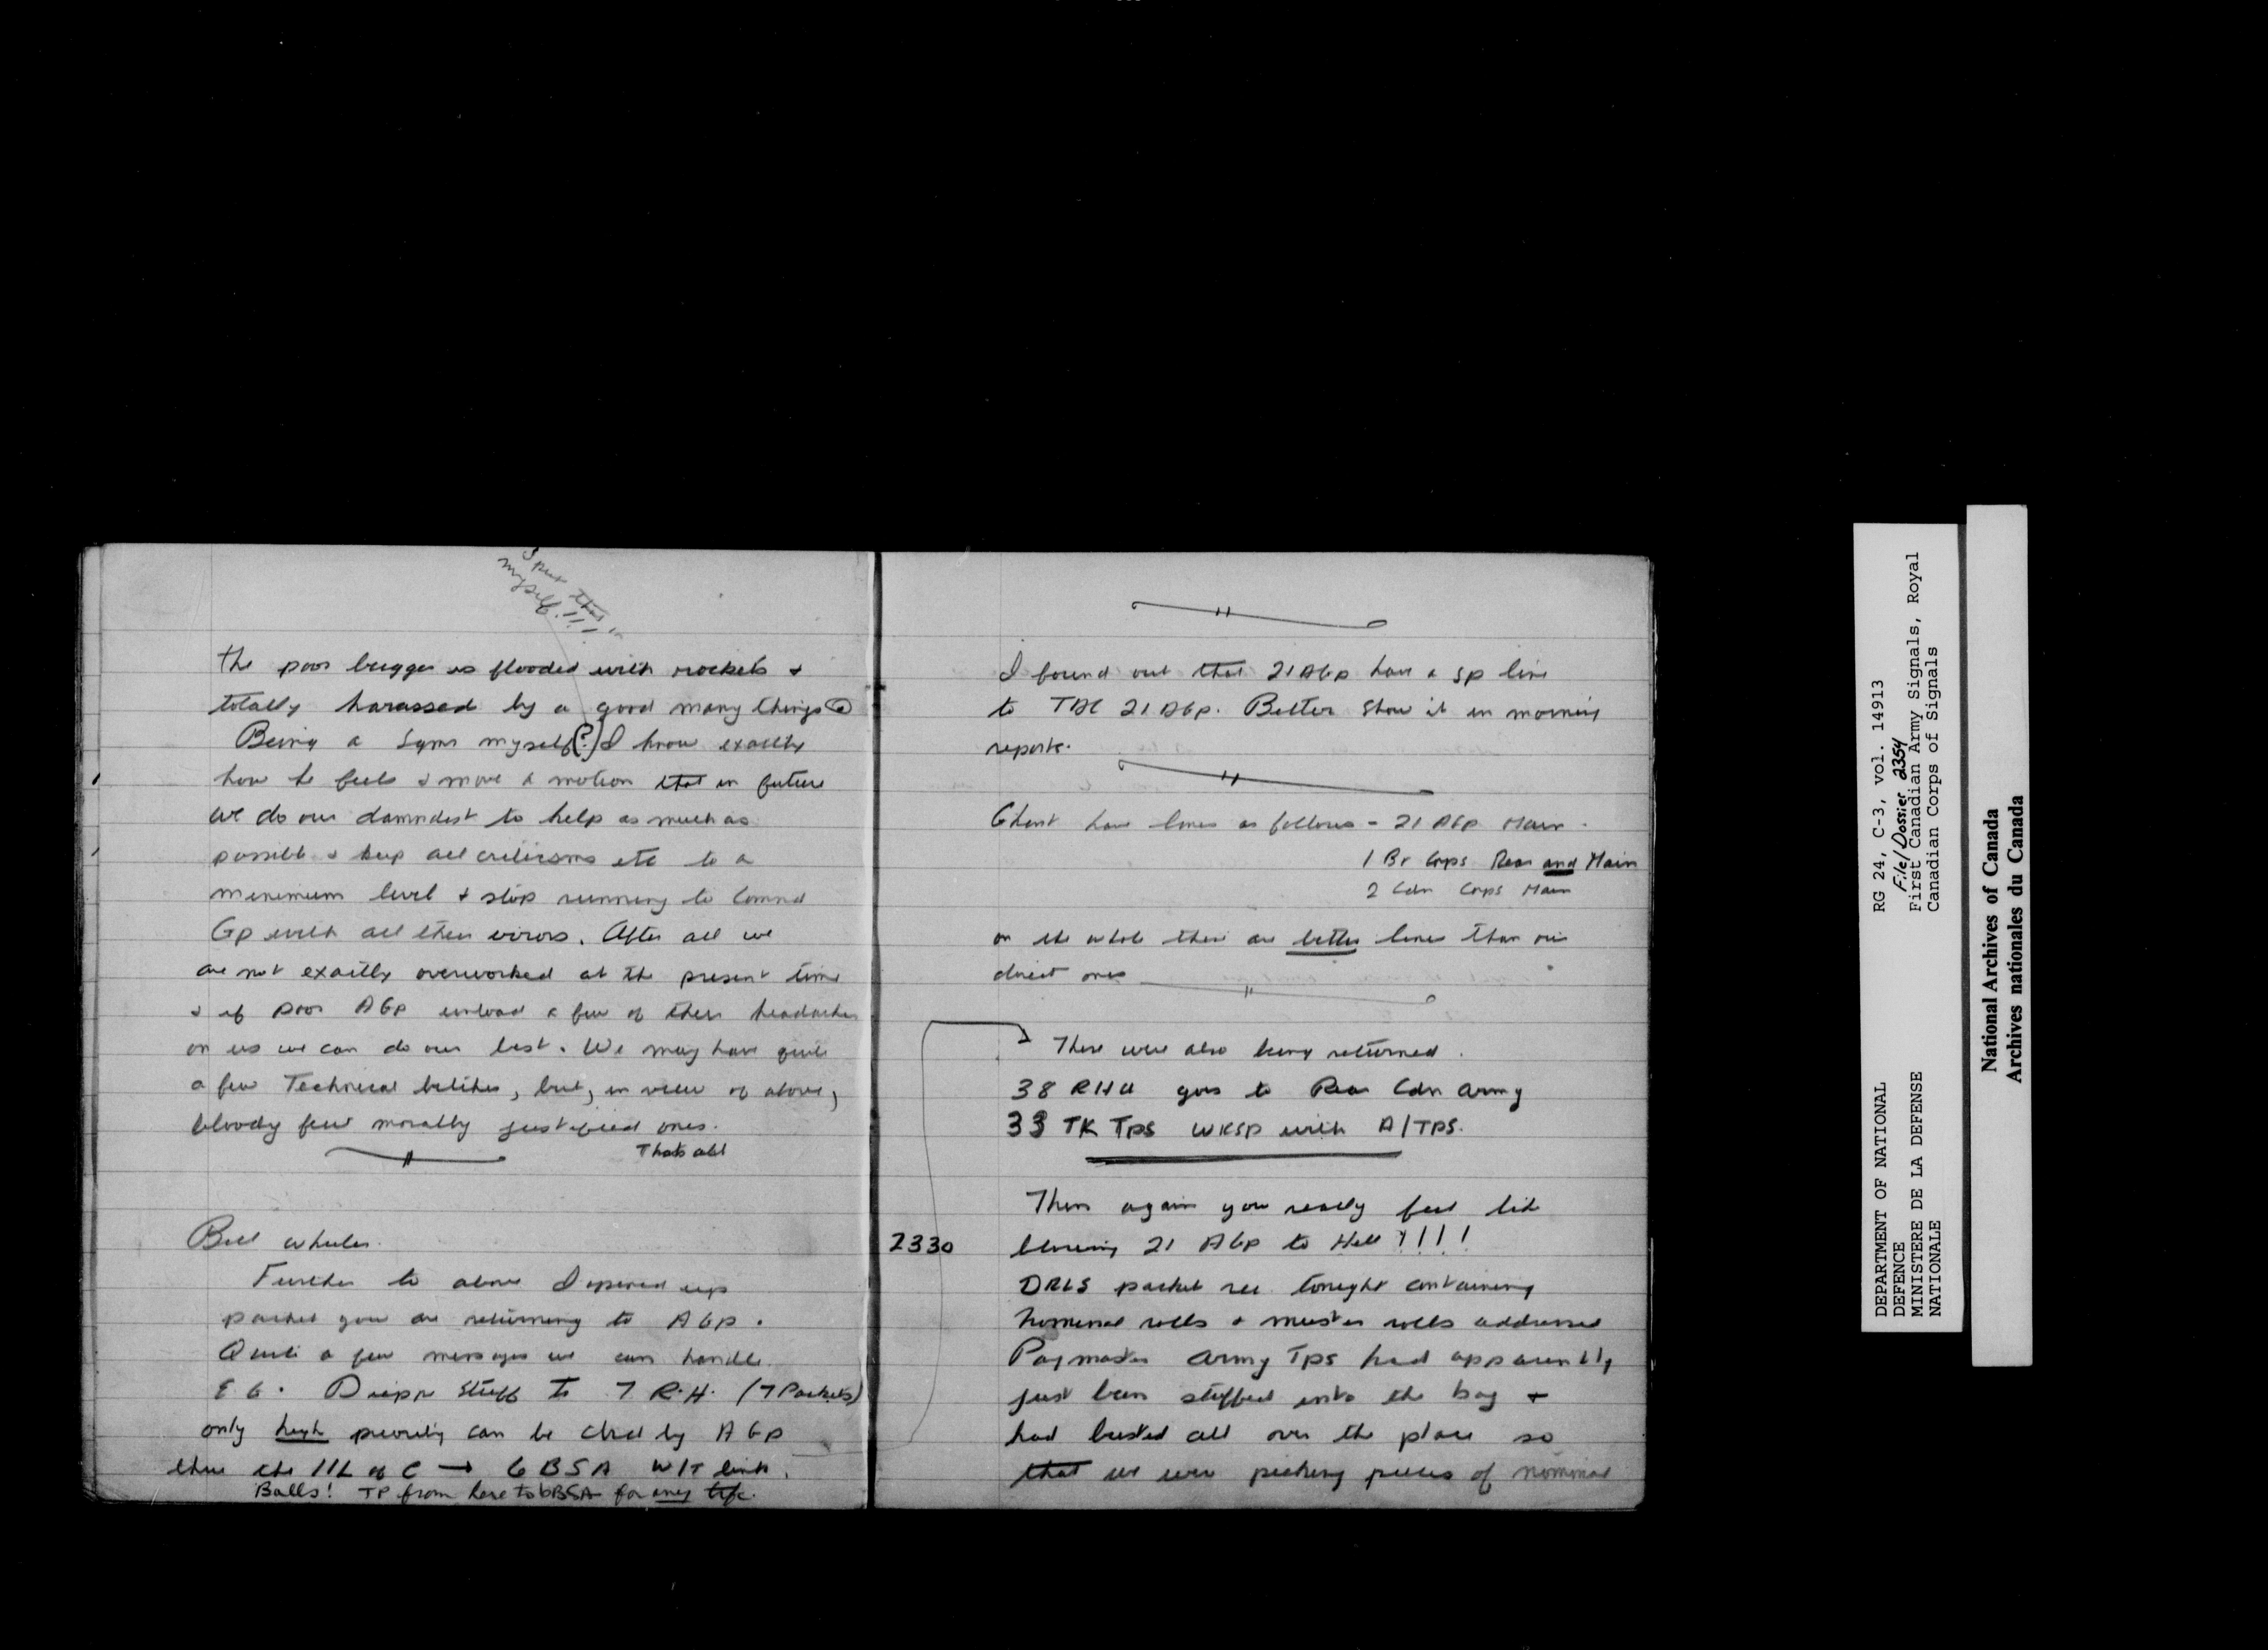 I put that in
myself!!!!
the poor bugger is flooded with rockets &
totally harassed by a good many things
Being a Sgm myself(?) I know exactly
how he feels & move a motion that in future
we do our damndest to help as much as
possible & keep all criticisms etc to a
minimum level & stop running to Comnd
Gp with all their errors. After all we
are not exactly overworked at the present time
& if poor AGp unload a few of their headaches
on us we can do our best. We may have quite
a few Technical bitches, but, in view of above,
bloody few morally justified ones.
Thats all
Bill
Further to above I opened up
packet you are returning to AGp.
Quite a few messages we can handle
EG. Dieppe Stuff to 7 R.H. (7 Packets)
only high priority can be clred by AGp
thru the 11L of C → 6 BSA W/T link.
Balls! TP from here to 6BSA for any tfc.
I found out that 21 AGp have a sp line
to TAC 21 AGp. Better Show it in morning
reports.
Ghent have lines as follows - 21 AGp Main.
1 Br Corps Rear and Main
2 Cdn Corps Main
on the whole these are better lines than our
direct ones
These were also being returned.
38 RHU goes to Rear Cdn Army
33 TK TPS WKSP with A/TPS.
Then again you really feel like
2330 blowing 21 AGp to Hell !!!!
DRLS packet rec tonight containing
Nominal rolls & muster rolls addressed
Paymaster Army TPS had apparently
just been stuffed into the bag &
had busted all over the place so
that we were picking pieces of nominal
DEPARTMENT OF NATIONAL
DEFENCE
MINISTERE DE LA DEFENSE
NATIONALE
RG 24, C-3, vol. 14913
File/Dossier 2354
First Canadian Army Signals, Royal
Canadian Corps of Signals
National Archives of Canada
Archives nationales du Canada